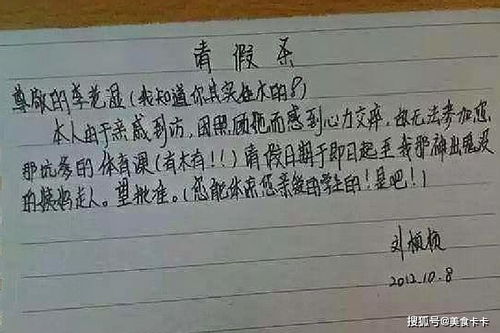 请假条
尊敬的李觉湿(我知道你其实挺水的?)
本人由于亲戚到访,因照顾她而感到心力交瘁,故无法参加您
那坑爹的体育课(有木有!!)请假日期于即日起至我那神出鬼没
的姨妈走人。望批准。(您能体谅您亲爱的学生的!是吧!)
刘桢桢
2012.10.8
搜狐号@美食卡卡